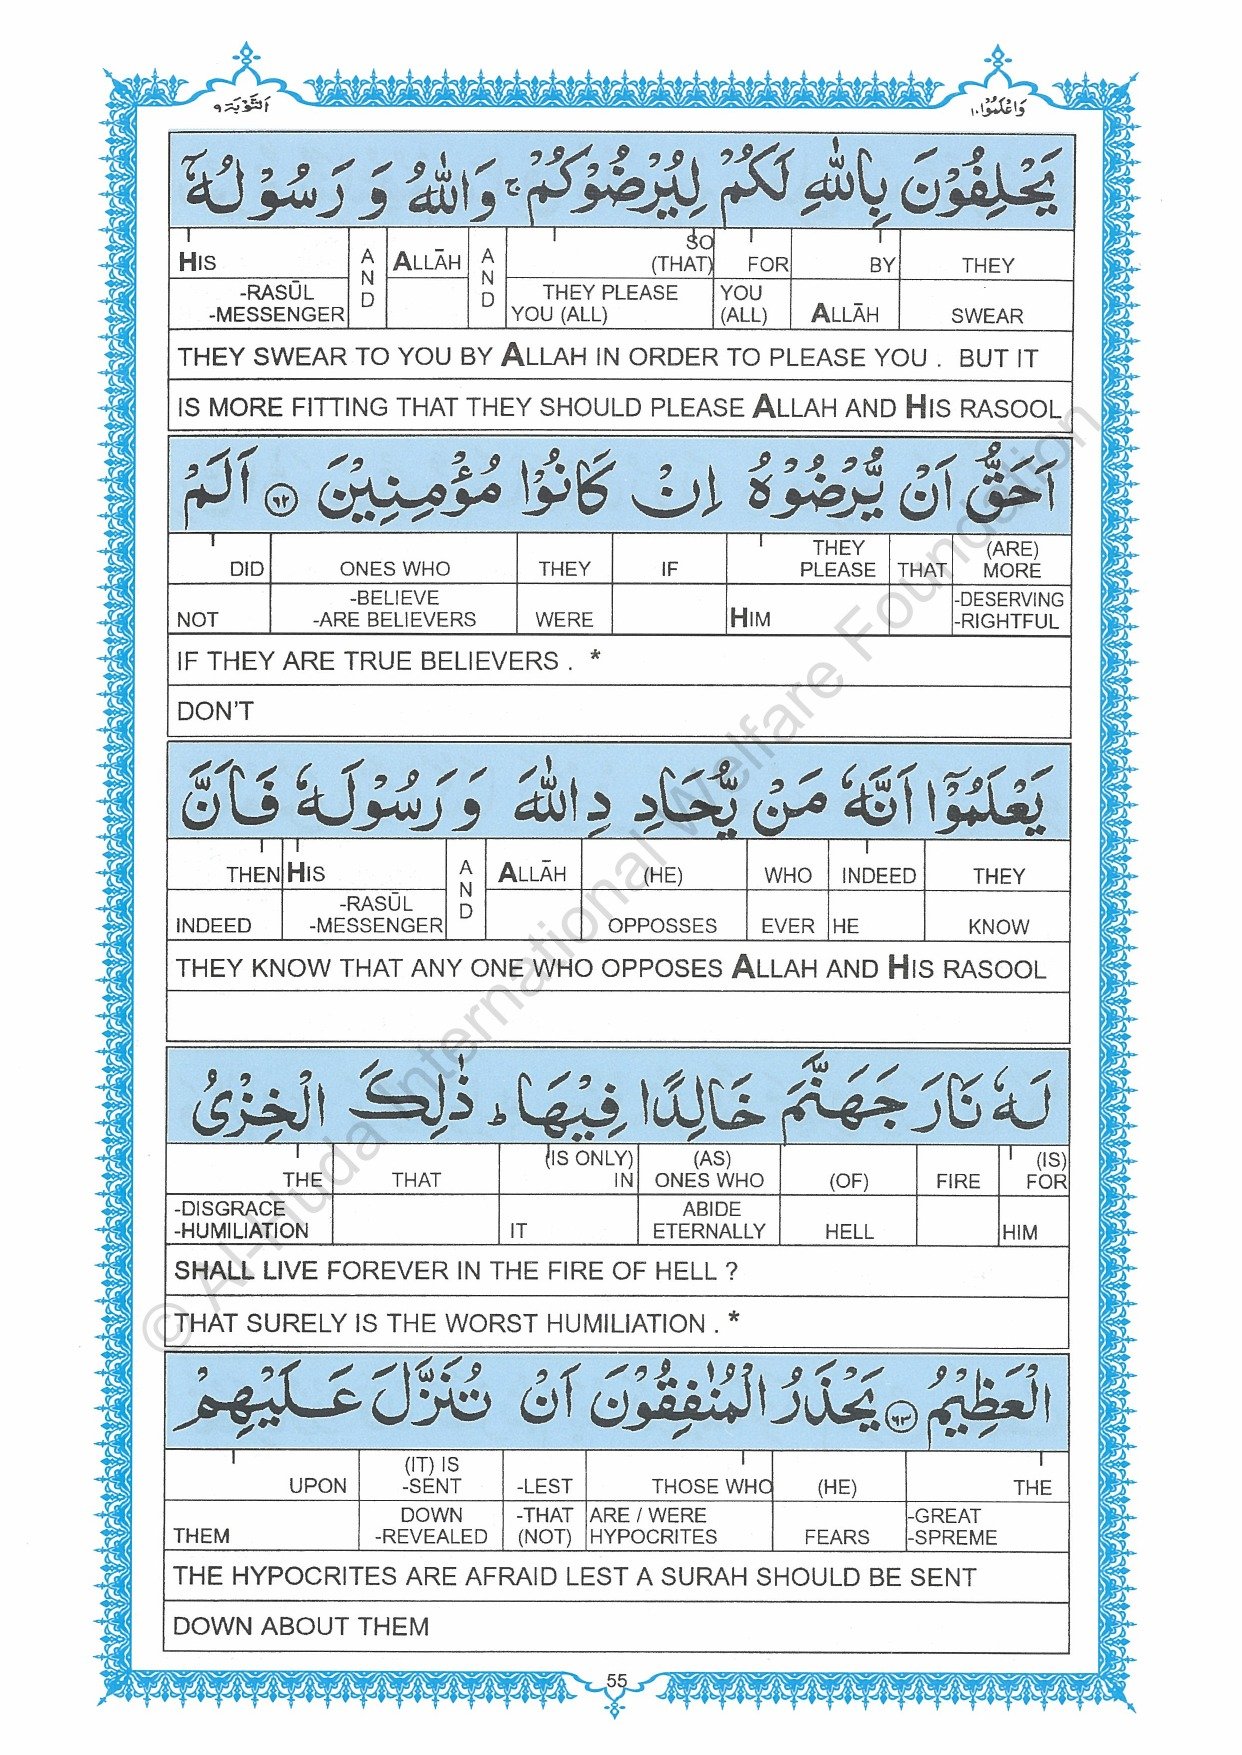 اَلتَّوْبَة ٩
وَاعْلَمُوْٓا ١٠
يَحْلِفُوْنَ بِاللّٰهِ لَكُمْ لِيُرْضُوْكُمْ ۚ وَاللّٰهُ وَ رَسُوْلُهٗٓ
HIS AND ALLĀH AND SO (THAT) FOR BY THEY
-RASŪL -MESSENGER THEY PLEASE YOU (ALL) YOU (ALL) ALLĀH SWEAR
THEY SWEAR TO YOU BY ALLAH IN ORDER TO PLEASE YOU . BUT IT
IS MORE FITTING THAT THEY SHOULD PLEASE ALLAH AND HIS RASOOL
اَحَقُّ اَنْ يُّرْضُوْهُ اِنْ كَانُوْا مُؤْمِنِيْنَ ۝٦٢ اَلَمْ
DID ONES WHO THEY IF THEY PLEASE THAT (ARE) MORE
NOT -BELIEVE -ARE BELIEVERS WERE HIM -DESERVING -RIGHTFUL
IF THEY ARE TRUE BELIEVERS . *
DON'T
يَعْلَمُوْٓا اَنَّهٗ مَنْ يُّحَادِ دِاللّٰهَ وَ رَسُوْلَهٗ فَاَنَّ
THEN HIS AND ALLĀH (HE) WHO INDEED THEY
INDEED -RASŪL -MESSENGER OPPOSSES EVER HE KNOW
THEY KNOW THAT ANY ONE WHO OPPOSES ALLAH AND HIS RASOOL
لَهٗ نَارَ جَهَنَّمَ خَالِدًا فِيْهَا ؕ ذٰلِكَ الْخِزْىُ
THE THAT (IS ONLY) IN (AS) ONES WHO (OF) FIRE (IS) FOR
-DISGRACE -HUMILIATION IT ABIDE ETERNALLY HELL HIM
SHALL LIVE FOREVER IN THE FIRE OF HELL ?
THAT SURELY IS THE WORST HUMILIATION . *
الْعَظِيْمُ ۝٦٣ يَحْذَرُ الْمُنٰفِقُوْنَ اَنْ تُنَزَّلَ عَلَيْهِمْ
UPON (IT) IS -SENT -LEST THOSE WHO (HE) THE
THEM DOWN -REVEALED -THAT (NOT) ARE / WERE HYPOCRITES FEARS -GREAT -SPREME
THE HYPOCRITES ARE AFRAID LEST A SURAH SHOULD BE SENT
DOWN ABOUT THEM
55
© Al-Huda International Welfare Foundation